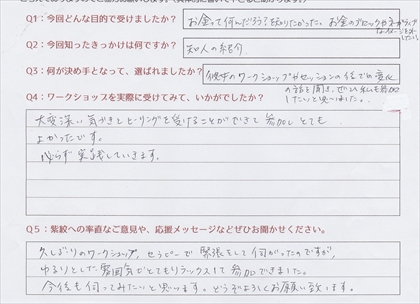 Q1：今回どんな目的で受けましたか？
お金って何んだろう？を知りたかった。お金のブロックや
Q2：今回知ったきっかけは何ですか？
知人の紹介
Q3：何が決め手となって、選ばれましたか？
のワークショップやセッションの後での変化
の話を聞き、ぜひ私も参加
したいと思いました。
Q4：ワークショップを実際に受けてみて、いかがでしたか？
大変深い気づきとヒーリングを受けることができて参加しとても
よかったです。
必らず実践していきます。
Q5：紫紋への率直なご意見や、応援メッセージなどぜひお聞かせください。
久しぶりのワークショップ、セラピーで緊張をして伺がったのですが、
ゆるりとした雰囲気でとてもリラックスして参加できました。
今後も伺ってみたいと思います。どうぞよろしくお願い致します。